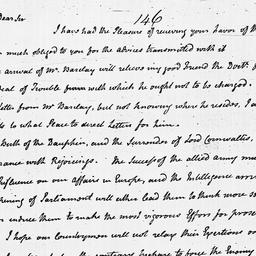 146
Dear Sir
I have had the Pleasure of receiving your favor of the
much obliged to you for the advices transmitted with it
arrival of Mr. Barclay will relieve my good Friend the Doctr.
Deal of Trouble from with which he ought not to be charged.
Letter from Mr Barclay, but not knowing where he resides, I a
to what Place to direct Letters for him.
Birth of the Dauphin, and the Surrender of Lord Cornwallis,
ance with Rejoicings. The Success of the allied Army mu
Influence on our affairs in Europe, and the Intelligence arriv
pening of Parliament will either lead them to think more se
or induce them to make the most vigorous Efforts for prose
I hope our Countrymen will not relax their Exertions on
the contrary prepare to force the Enemy